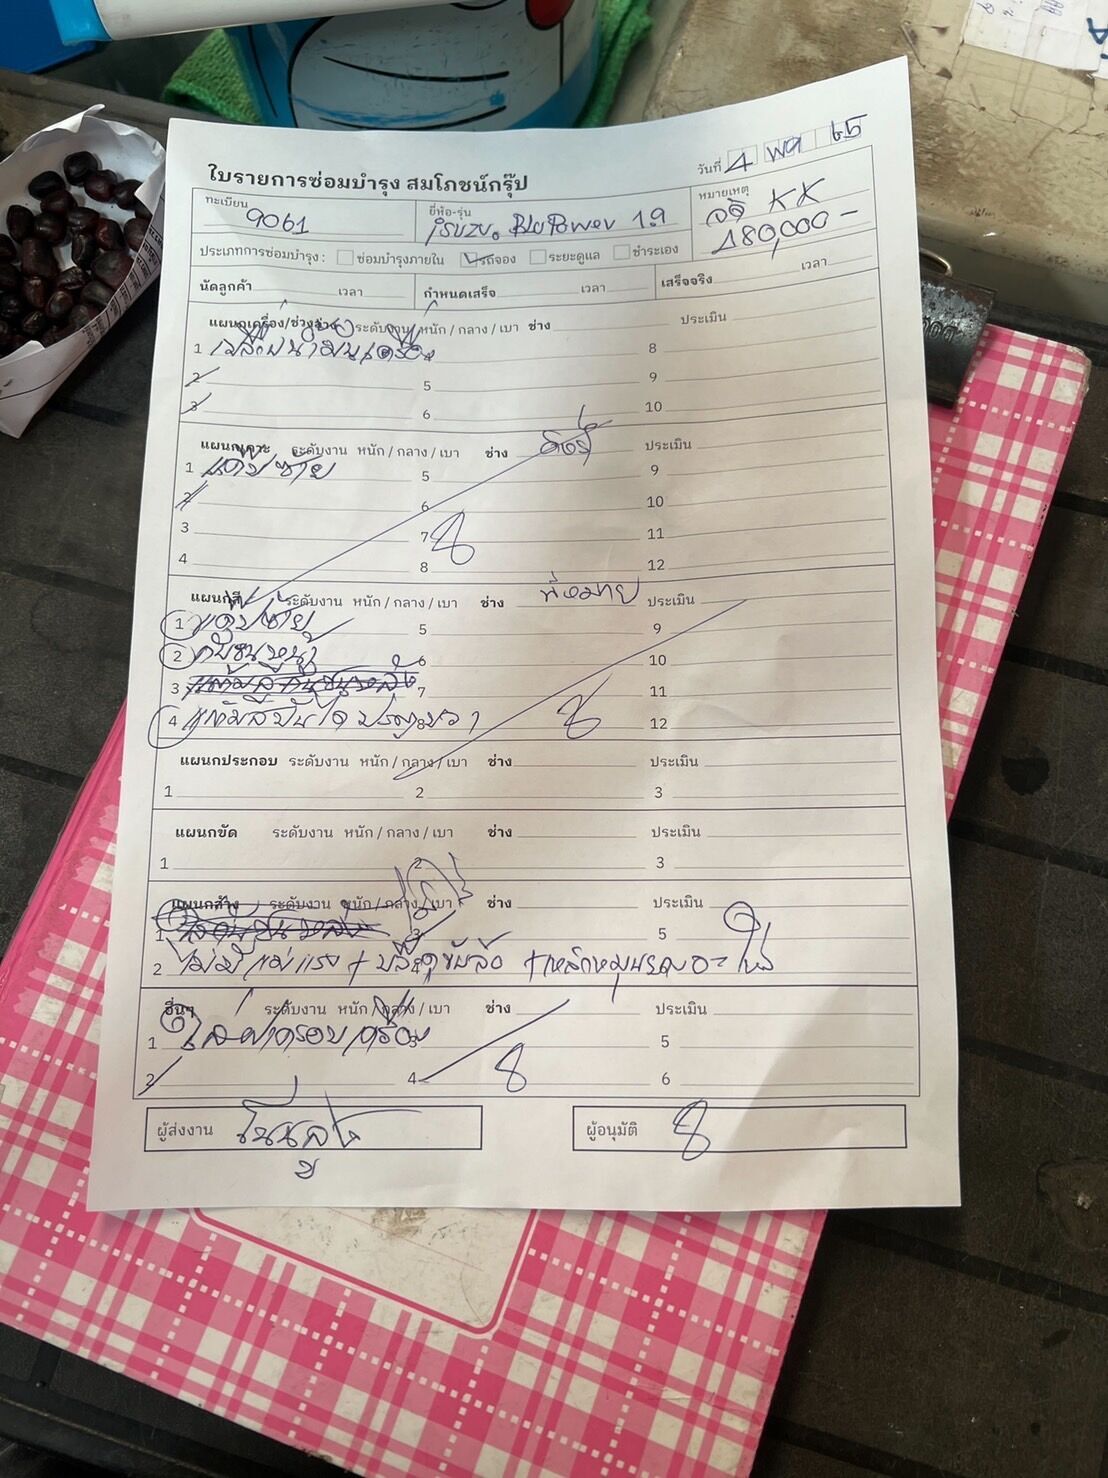 ใบรายการซ่อมบำรุง สมโภชน์กรุ๊ป
วันที่ 4 พค 65
ทะเบียน 9061
ยี่ห้อ-รุ่น isuzu BluPower 1.9
หมายเหตุ จดี KK
180,000-
ประเภทการซ่อมบำรุง : ซ่อมบำรุงภายใน รถจอง ระยะดูแล ชำระเอง
นัดลูกค้า เวลา กำหนดเสร็จ เวลา เสร็จจริง เวลา
แผนกเครื่อง/ช่วงล่าง ระดับงาน หนัก / กลาง / เบา ช่าง ประเมิน
1 เปลี่ยนน้ำมันเครื่อง 4 8
2 5 9
3 6 10
แผนกเคาะ ระดับงาน หนัก / กลาง / เบา ช่าง ประเมิน
1 แก้มซ้าย 5 9
2 6 10
3 7 11
4 8 12
แผนกสี ระดับงาน หนัก / กลาง / เบา ช่าง พี่หมาย ประเมิน
1 แก้มซ้าย 5 9
2 กันชนหน้า 6 10
3 แต้มสีกันชนหลัง 7 11
4 แต้มสีบันได 12
แผนกประกอบ ระดับงาน หนัก / กลาง / เบา ช่าง ประเมิน
1 2 3
แผนกขัด ระดับงาน หนัก / กลาง / เบา ช่าง ประเมิน
1 2 3
แผนกล้าง ระดับงาน หนัก / กลาง / เบา ช่าง ประเมิน
1 3 5
2 ไม่มีแม่แรง +
อื่นๆ ระดับงาน หนัก / กลาง / เบา ช่าง ประเมิน
1 ใส่ฝาครอบเครื่อง 3 5
2 4 6
ผู้ส่งงาน
ผู้อนุมัติ